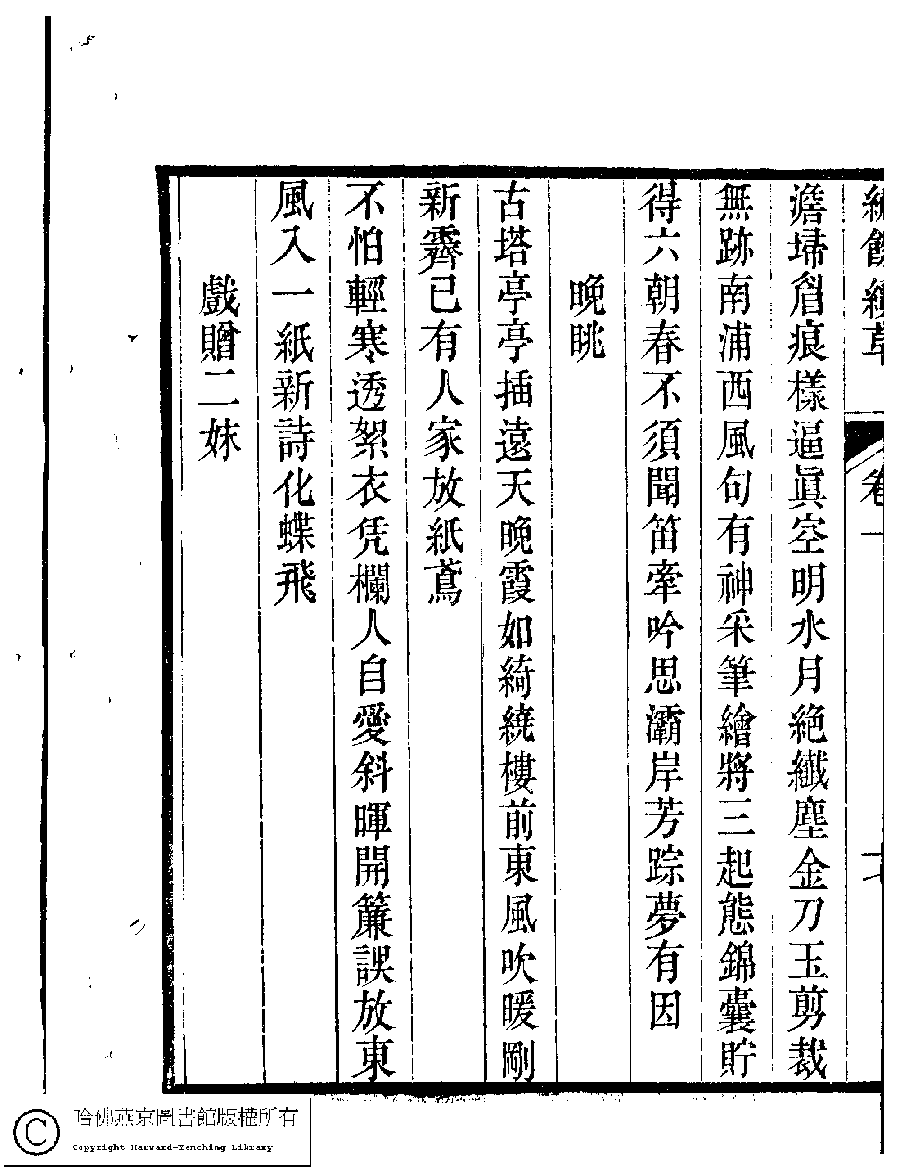 卷一
澹埽眉痕樣逼眞空明水月絶纖塵金刀玉剪裁
無跡南浦西風句有神采筆繪將三起態錦囊貯
得六朝春不須聞笛牽吟思灞岸芳踪夢有因
晚眺
古塔亭亭插遠天晚霞如綺繞樓前東風吹暖剛
新霽已有人家放紙鳶
不怕輕寒透絮衣凭欄人自愛斜暉開簾誤放東
風入一紙新詩化蝶飛
戲贈二妹
哈佛燕京圖書館版權所有
Copyright Harvard-Yenching Library